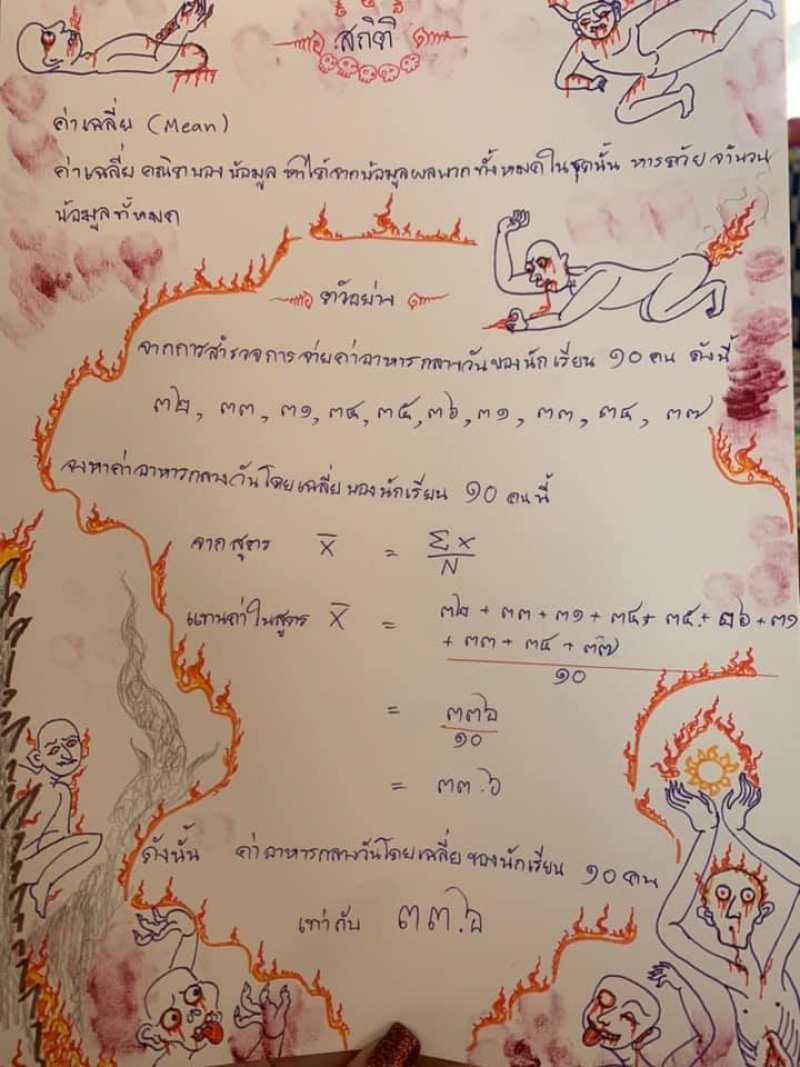 สถิติ
ค่าเฉลี่ย (Mean)
ค่าเฉลี่ย คณิตของข้อมูล หาได้จากข้อมูลผลบวกทั้งหมดในชุดนั้น หารด้วย จำนวน
ข้อมูลทั้หมด
ตัวอย่าง
จากการสำรวจการจ่ายค่าอาหารกลางวันของนักเรียน ๑๐ คน ดังนี้
๓๒, ๓๓, ๓๑, ๓๔, ๓๕, ๓๖, ๓๑, ๓๓, ๓๔, ๓๗
จงหาค่าอาหารกลางวันโดยเฉลี่ยของนักเรียน ๑๐ คนนี้
จากสูตร x̄ = Σx
N
แทนค่าในสูตร x̄ = ๓๒ + ๓๓ + ๓๑ + ๓๔ + ๓๕ + ๓๖ + ๓๑
+ ๓๓ + ๓๔ + ๓๗
๑๐
= ๓๓๖
๑๐
= ๓๓.๖
ดังนั้น ค่าอาหารกลางวันโดยเฉลี่ยของนักเรียน ๑๐ คน
เท่ากับ ๓๓.๖